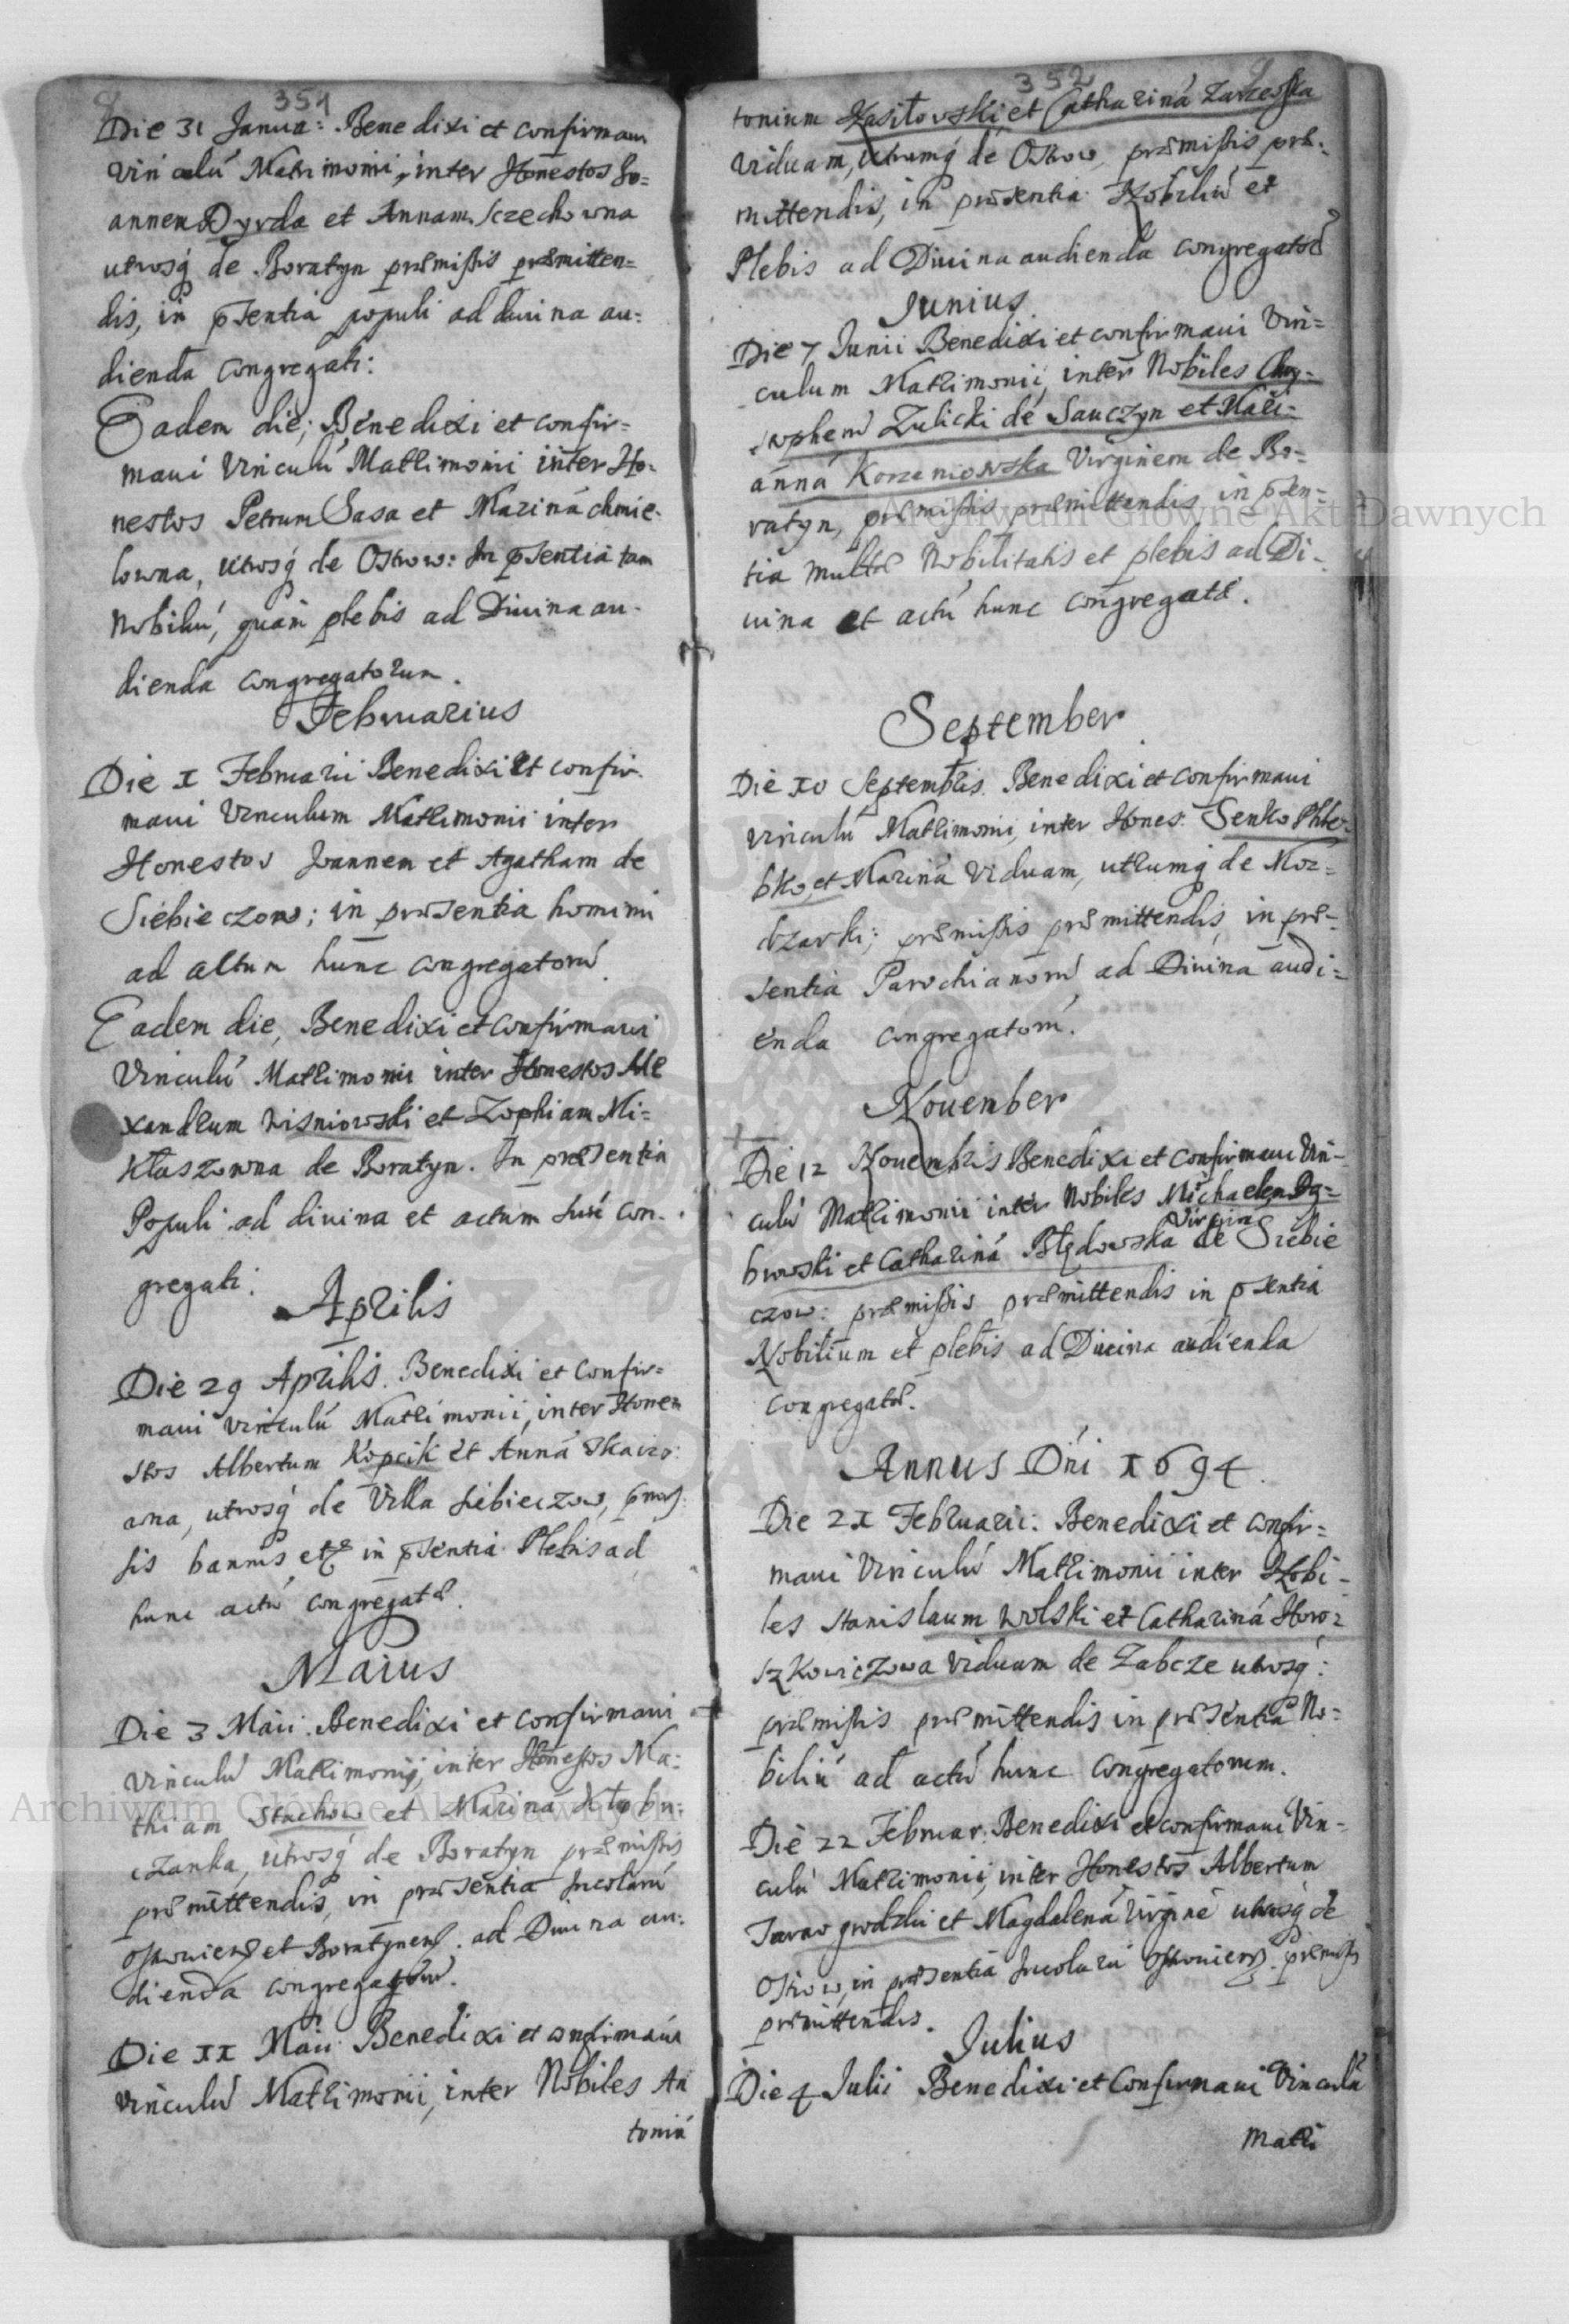 351
Die 31 Janua: Benedixi et confirmavi
Vinculú Matrimonii, inter Honestos Jo=
annem Dyrda et Annam Sczechowna
utrosq́ de Boratyn præmissis præmitten=
dis, in pñsentia populi ad divina au=
dienda congregati:
Eadem die; Benedixi et confir=
maui Vinculú Matrimonii inter Ho=
nestos Petrum Sasa et Mariná chmie-
lowna, utrosq́ de Ostrow: In pñsentia tam
Nobiliú, quam plebis ad Diuina au-
dienda congregatorum.
Februarius
Die I Februarii Benedixi et confir-
maui Vinculum Matrimonii inter
Honestos Joannem et Agatham de
Siebieczow; in præsentia hominú
ad actum hunc congregatorú
Eadem die, Benedixi et confirmaui
Vinculú Matrimonii inter Honestos Ale
xandrum Wisniowski et Zophiam Mi=
kłaszowna de Boratyn. In præsentia
Populi ad diuina et actum hunc con-
gregati.
Aprilis
Die 29 Aprilis. Benedixi et Confir=
maui vinculú Matrimonii, inter Hone
stos Albertum Kopcik et Anná
wna, utrosq́ de Villa Siebieczow,
sis bannis, etc in pñsentia Plebis ad
hunc actú congregatæ.
Maius
Die 3 Maii. Benedixi et confirmaui
Vinculú Matrimonij, inter Honestos Ma=
thiam Stachow et Mariná Kłobu=
czanka, utrosq́ de Boratyn præmissis
præmittendis, in præsentia Incolarú
Ostroviens et Boratynens. ad Diuina au=
dienda congregatorú.
Die II Maii Benedixi et confirmaui
Vinculú Matrimonii, inter Nobiles An
toniú
352
tonium Kasiłowski et Cathariná Zarzewska
Viduam, utrumq́ de Ostrow, præmissis præ=
mittendis, in præsentia Nobiliú et
Plebis ad Diuina audienda congregatæ
Junius
Die 7 Junii Benedixi et confirmaui Vin=
culum Matrimonii, inter Nobiles Chry=
stophem Zulicki de Sauczyn et Mari=
anná Korzeniowska Virginem de Bo=
ratyn, præmissis præmittendis, in pñsen=
tia multæ Nobilitatis et plebis ad Di=
uina et actú hunc congregatæ.
September
Die 10 Septembris. Benedixi et confirmaui
vinculú Matrimonii, inter Hones. Senko Phle
bko, et Mariná Viduam, utrumq́ de Mor=
dzarki; præmissis præmittendis, in præ=
sentia Parochianorú ad Diuina audi=
enda congregatorú.
Nouember
Die 12 Nouembris Benedixi et confirmaui Vin=
culú Matrimonii inter Nobiles Michaelem Dą=
browski et Cathariná Błędowska Virginé de Siebie
czow: præmissis præmittendis in pñsentia
Nobilium et plebis ad Diuina audienda
congregatæ.
Annus Dńi 1694.
Die 21 Februarii: Benedixi et confir=
maui Vinculú Matrimonii inter Nobi=
les Stanislaum Wolski et Cathariná Horo=
szkowiczowa Viduam de Zabcze utrosq́:
præmissis præmittendis in præsentia No=
biliú ad actú hunc congregatorum.
Die 22 Februar: Benedixi et confirmaui Vin=
culú Matrimonii, inter Honestos Albertum
Tarnogrodzki et Magdalená Virginé utrosq́ de
Ostrow, in præsentia Incolarú Ostroviens. præmissis
præmittendis.
Julius
Die 4 Julii Benedixi et Confirmaui Vinculú
Matri
Archiwum Główne Akt Dawnych
Archiwum Główne Akt Dawnych